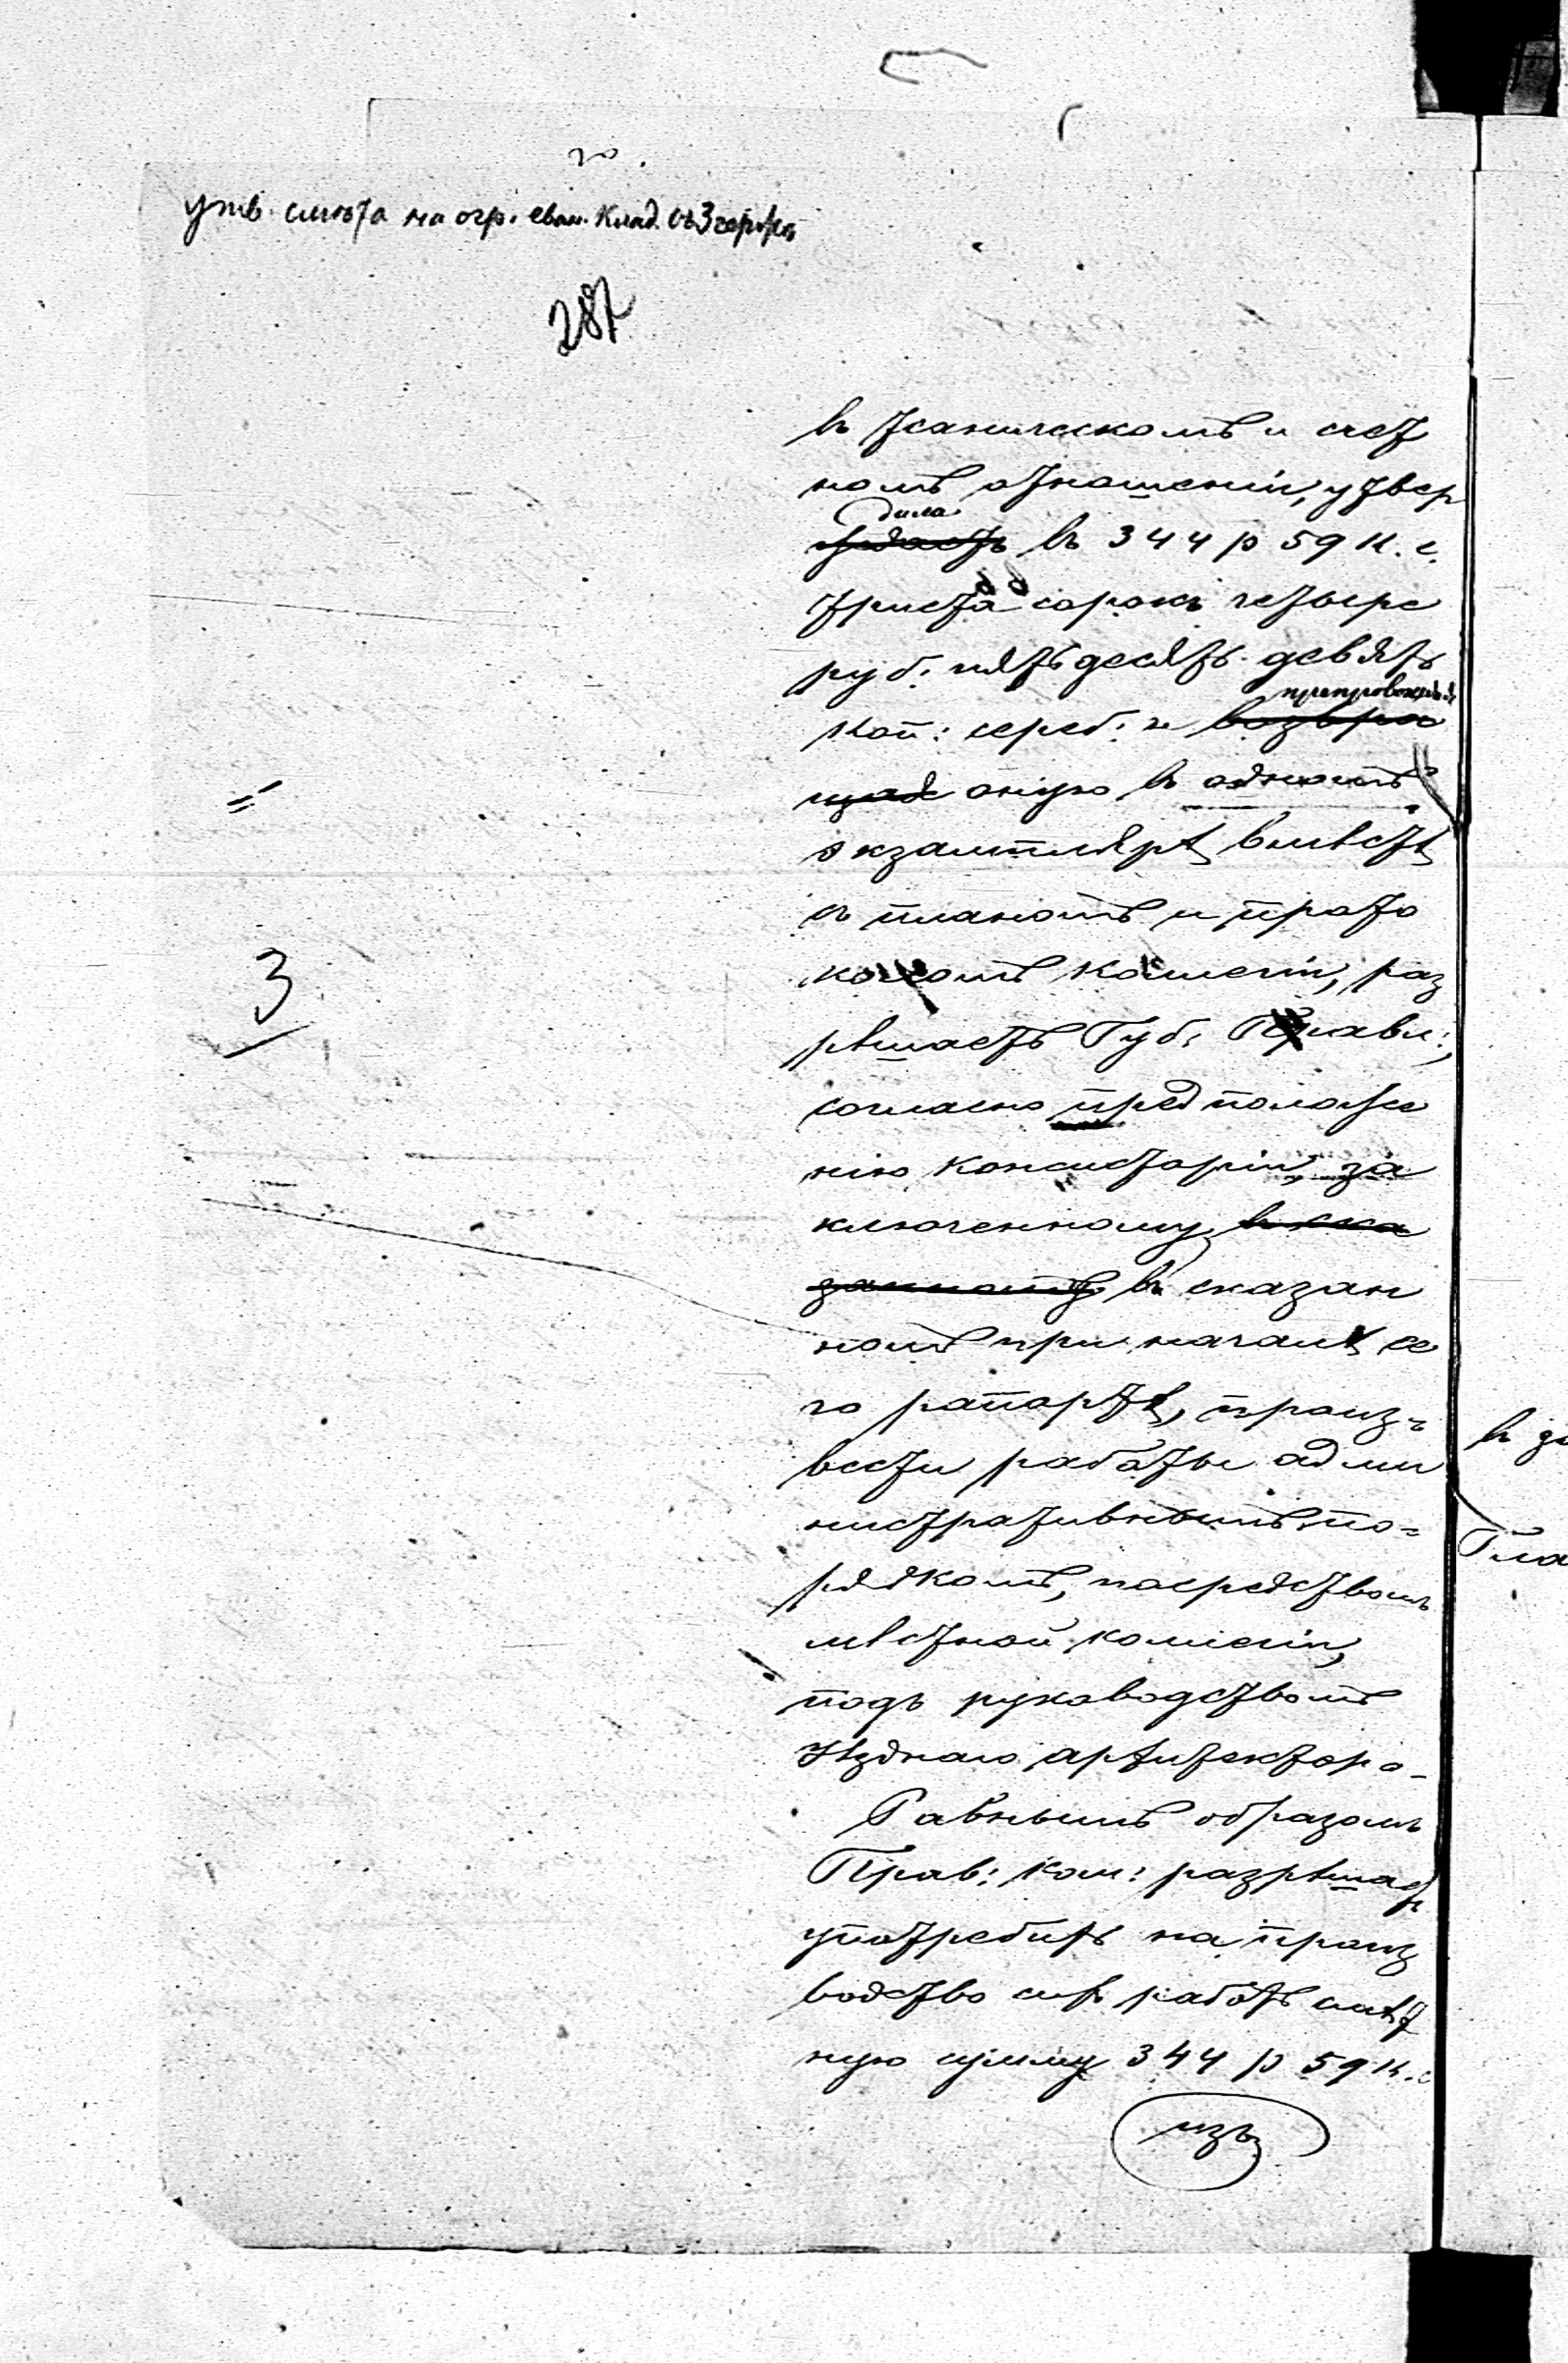 утв. смѣта на огр. еван. клад. въ Згержѣ
287
въ техническомъ и счет
номъ отношеніи, утвер
дила
ждаетъ въ 344 р 59 к. с.
триста сорокъ четыре
руб. пятьдесятъ девять
препровождая
коп: сереб: и возвра
щая оную въ одномъ
экземплярѣ вмѣстѣ
съ планомъ и прото
коломъ комисіи, раз
рѣшаетъ Губ. Правл:,
согласно предположе
нію Консисторіи, за
ключенному въ ска
занномъ въ сказан
номъ при началѣ се
го рапортѣ, произ-
вести работы адми
нистративнымъ по-
рядкомъ, посредствомъ
мѣстной комисіи,
подъ руководствомъ
Уѣзднаго архитектора-
Равнымъ образомъ
Прав: ком: разрѣшаетъ
употребить на произ
водство сихъ работъ смѣт
ную сумму 344 р 59 к. с
изъ
3